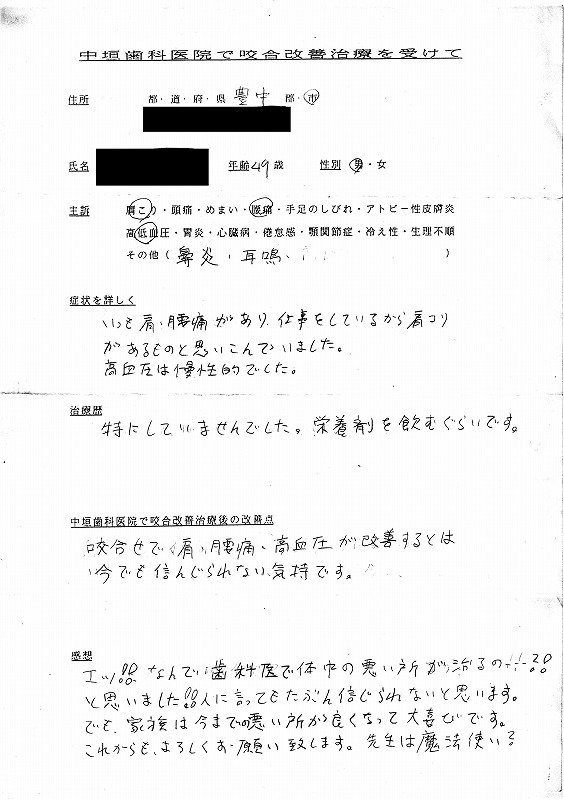 中垣歯科医院で咬合改善治療を受けて
住所 都・道・府・県 豊中 郡・市
氏名 年齢49歳 性別 男・女
主訴 肩こり・頭痛・めまい・腰痛・手足のしびれ・アトピー性皮膚炎
高低血圧・胃炎・心臓病・倦怠感・顎関節症・冷え性・生理不順
その他（鼻炎、耳鳴、）
症状を詳しく
いつも肩、腰痛があり、仕事をしているから肩コリ
があるものと思いこんでいました。
高血圧は慢性的でした。
治療歴
特にしていませんでした。栄養剤を飲むぐらいです。
中垣歯科医院で咬合改善治療後の改善点
咬合せで、肩、腰痛、高血圧が改善するとは
今でも信んじられない気持です。
感想
エッ!! なんで歯科医で体中の悪い所が治るの
と思いました!!人に言ってもたぶん信じられないと思います。
でも、家族は今までの悪い所が良くなって大喜びです。
これからも、よろしくお願い致します。先生は魔法使い?